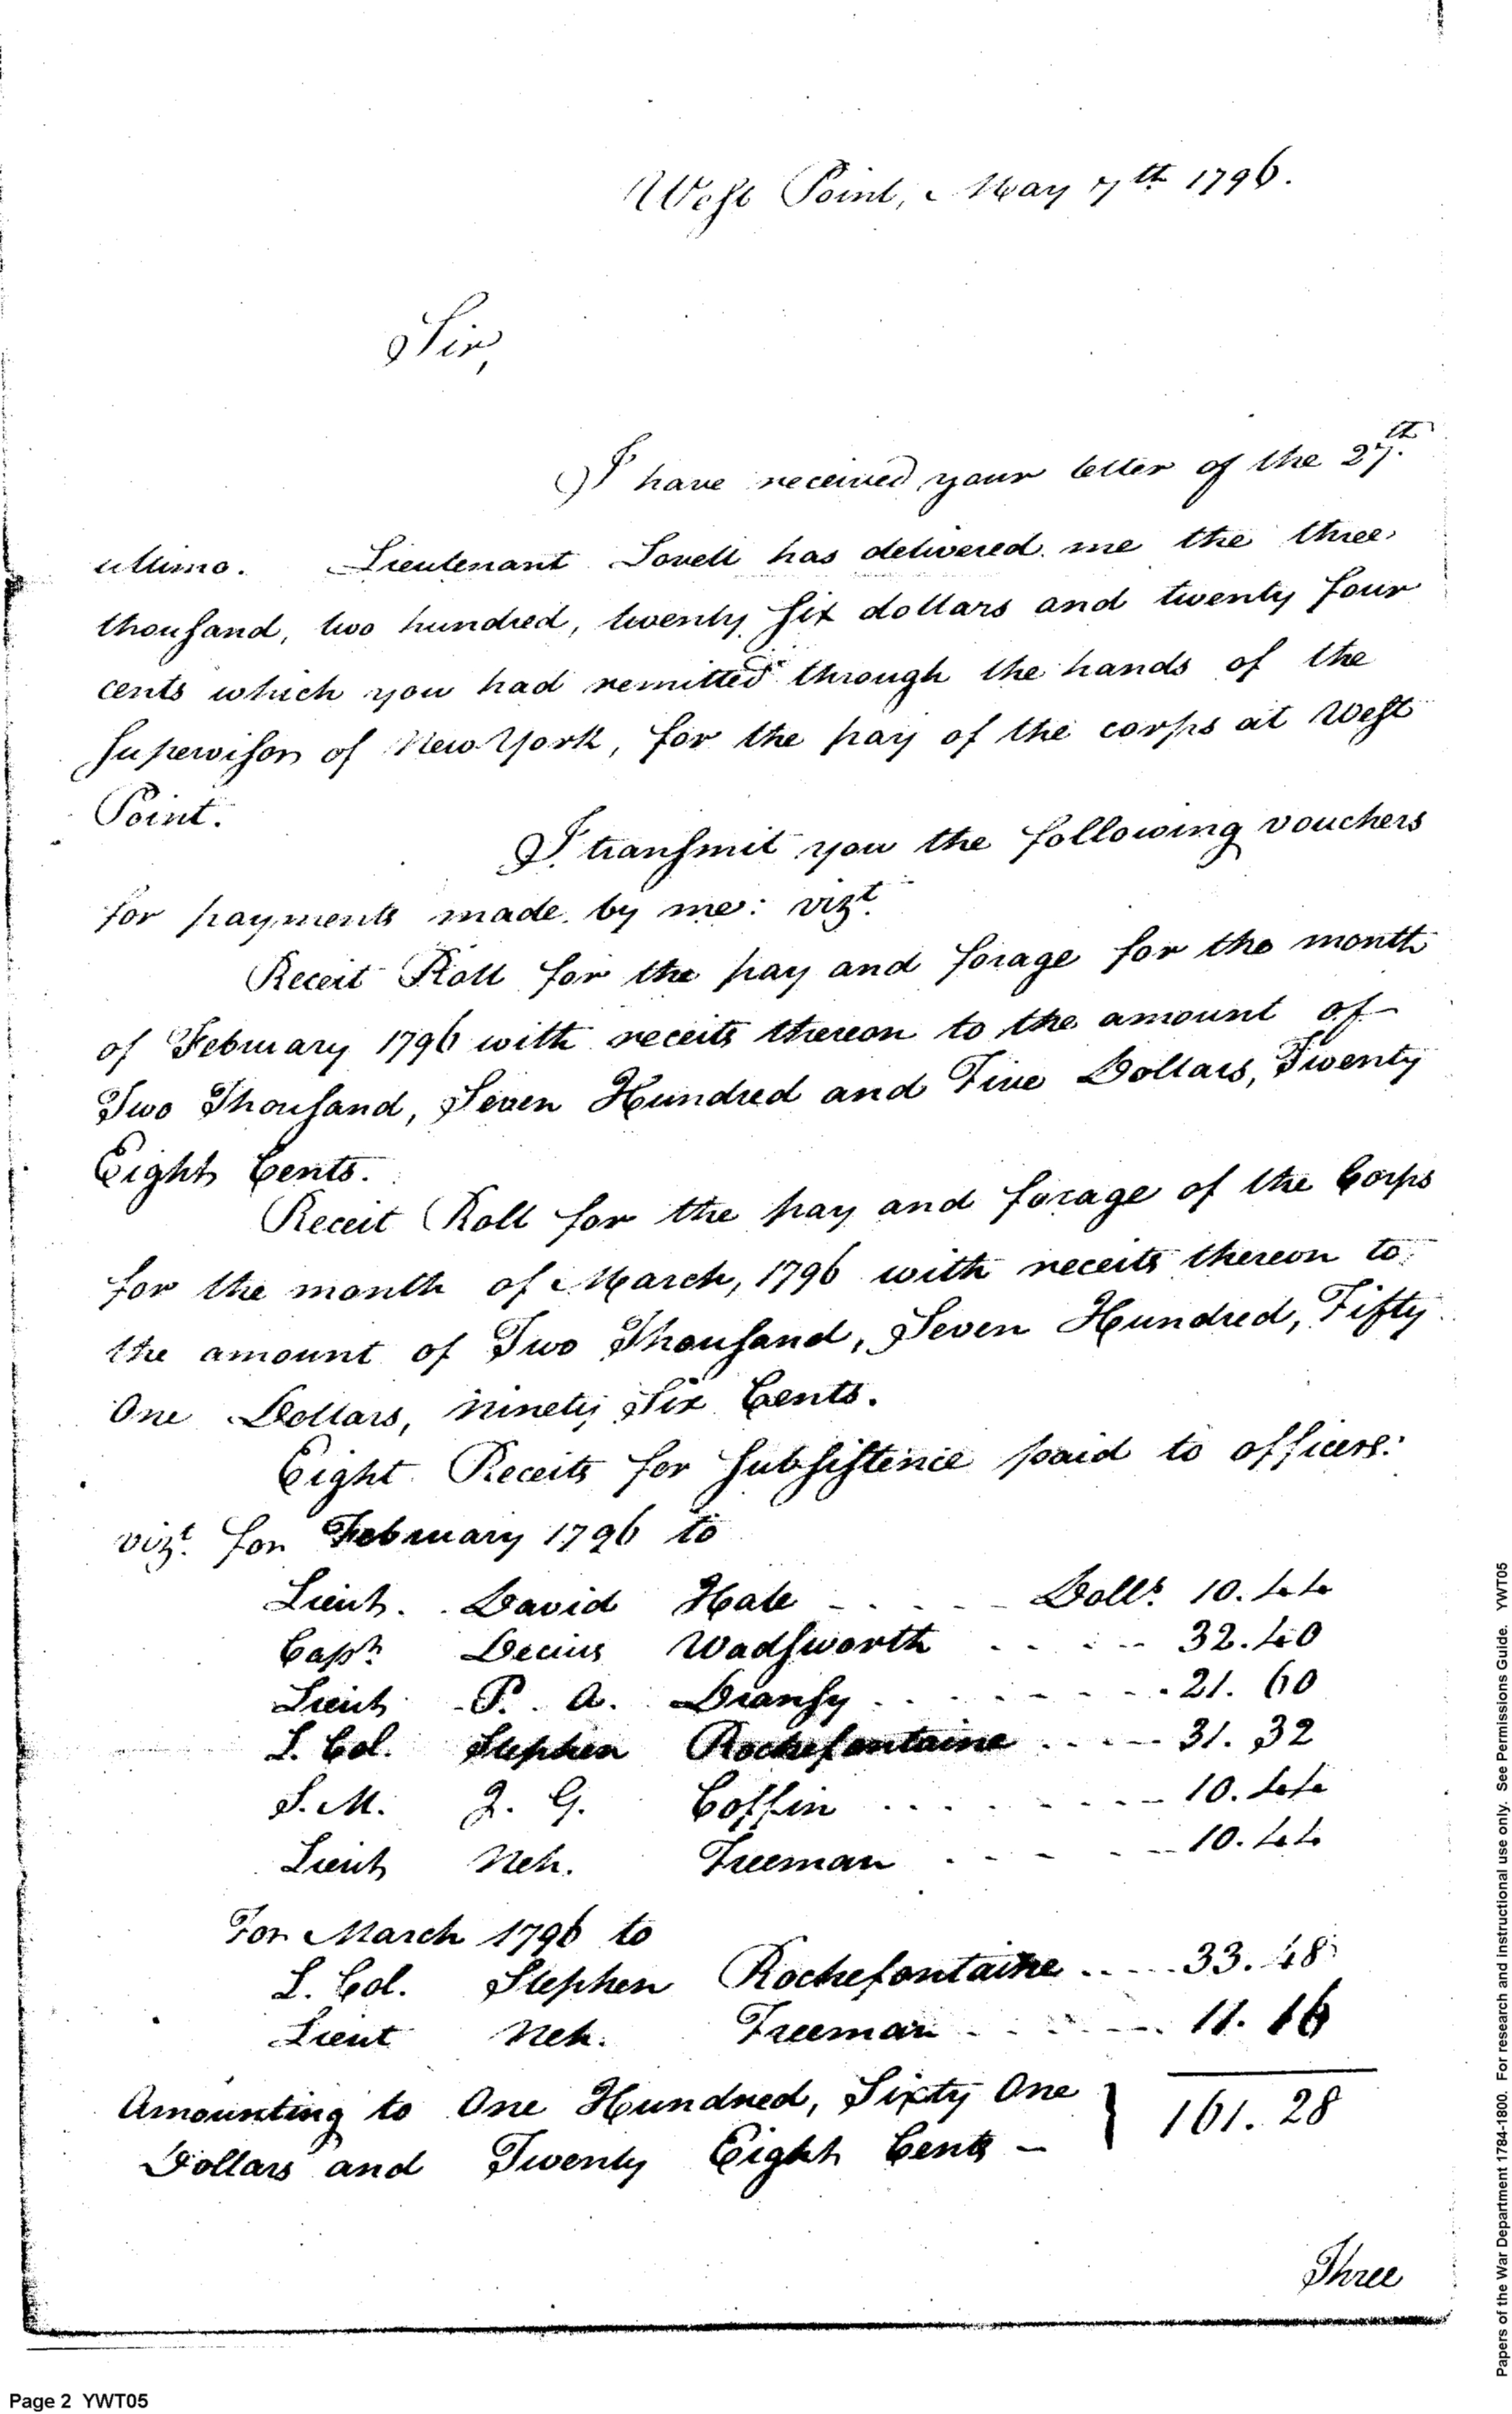 West Point, May 7th 1796.
Sir,
I have received your letter of the 27th.
ultimo. Lieutenant Lovell has delivered me the three
thousand, two hundred, twenty six dollars and twenty four
cents which you had remitted through the hands of the
supervisor of New York, for the pay of the corps at West
Point.
I transmit you the following vouchers
for payments made by me: vizt.
Receit Roll for the pay and forage for the month
of February 1796 with receits thereon to the amount of
Two Thousand, Seven Hundred and Five Dollars, Twenty
Eight Cents.
Receit Roll for the pay and forage of the Corps
for the month of March, 1796 with receits thereon to
the amount of Two Thousand, Seven Hundred, Fifty
One Dollars, ninety Six Cents.
Eight Receits for subsistence paid to officers:
vizt. for February 1796 to
Lieut. David Hale - - - - - Dolls. 10.44
Capt. Decius Wadsworth - - - - 32.40
Lieut P. A. Dransy - - - - - - - 21.60
L. Col. Stephen Rochefontaine - - - - 31.32
S.M. J. G. Coffin - - - - - - - 10.44
Lieut Neh. Freeman - - - - - 10.44
For March 1796 to
L. Col. Stephen Rochefontaine - - - - 33.48
Lieut Neh. Freeman - - - - - - 11.16
Amounting to One Hundred, Sixty One
Dollars and Twenty Eight Cents - } 161.28
Three
Page 2 YWT05
Papers of the War Department 1784-1800. For research and instructional use only. See Permissions Guide. YWT05